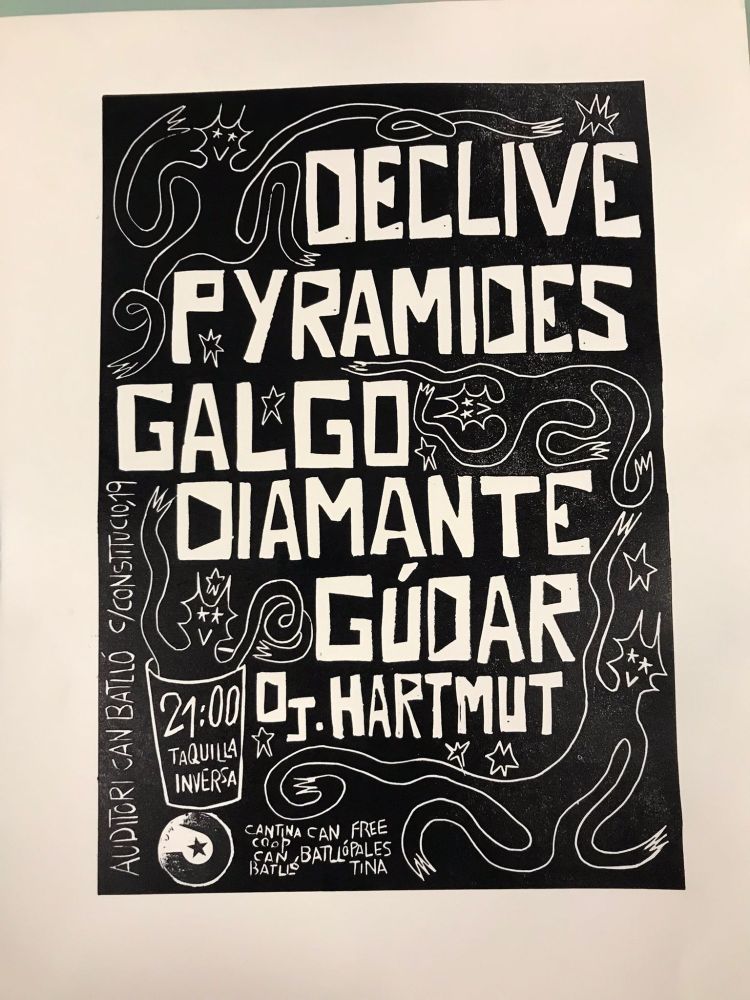 DECLIVE
PYRAMIDES
GALGO
DIAMANTE
GÚDAR
DJ. HARTMUT
21:00
TAQUILLA
INVERSA
AUDITORI CAN BATLLÓ C/CONSTITUCIO,19
CANTINA
COOP
CAN
BATLLÓ
CAN
BATLLÓ
FREE
PALES
TINA